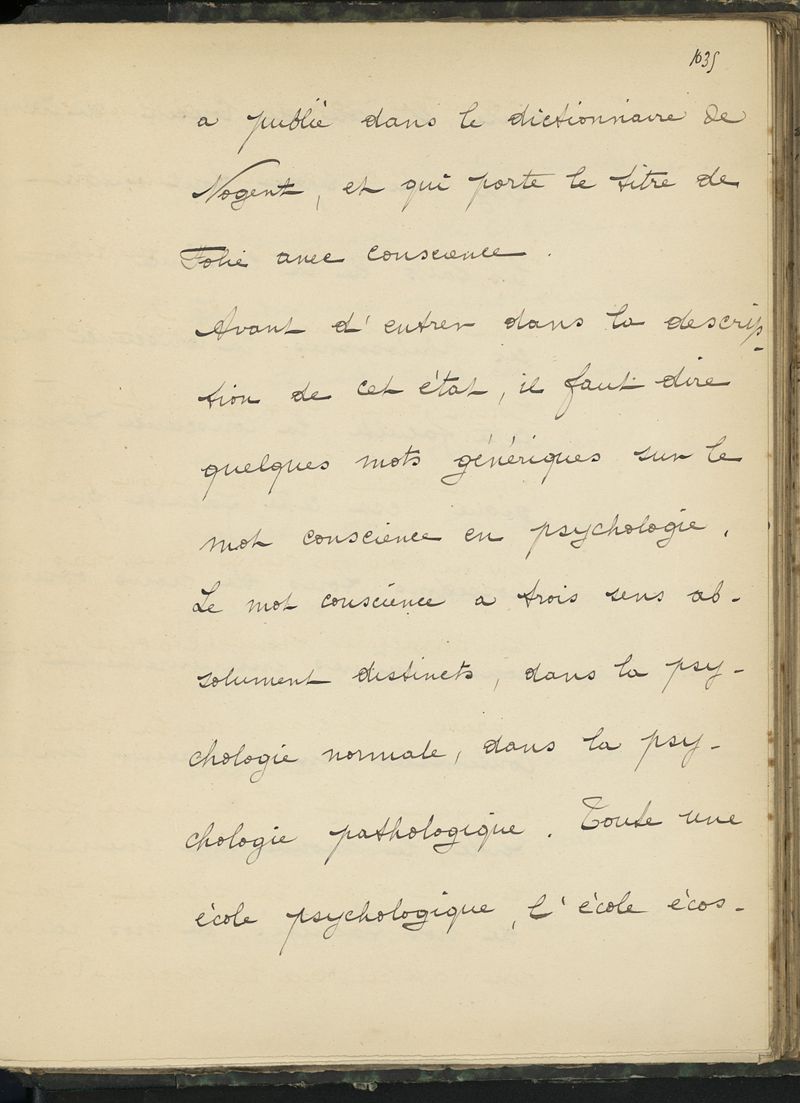 1035
a publié dans le dictionnaire de
Nogent, et qui porte le titre de
Folie avec conscience.
Avant d'entrer dans la descrip-
tion de cet état, il faut dire
quelques mots génériques sur le
mot conscience en psychologie.
Le mot conscience a trois sens ab-
solument distincts, dans la psy-
chologie normale, dans la psy-
chologie pathologique. Toute une
école psychologique, l'école écos-